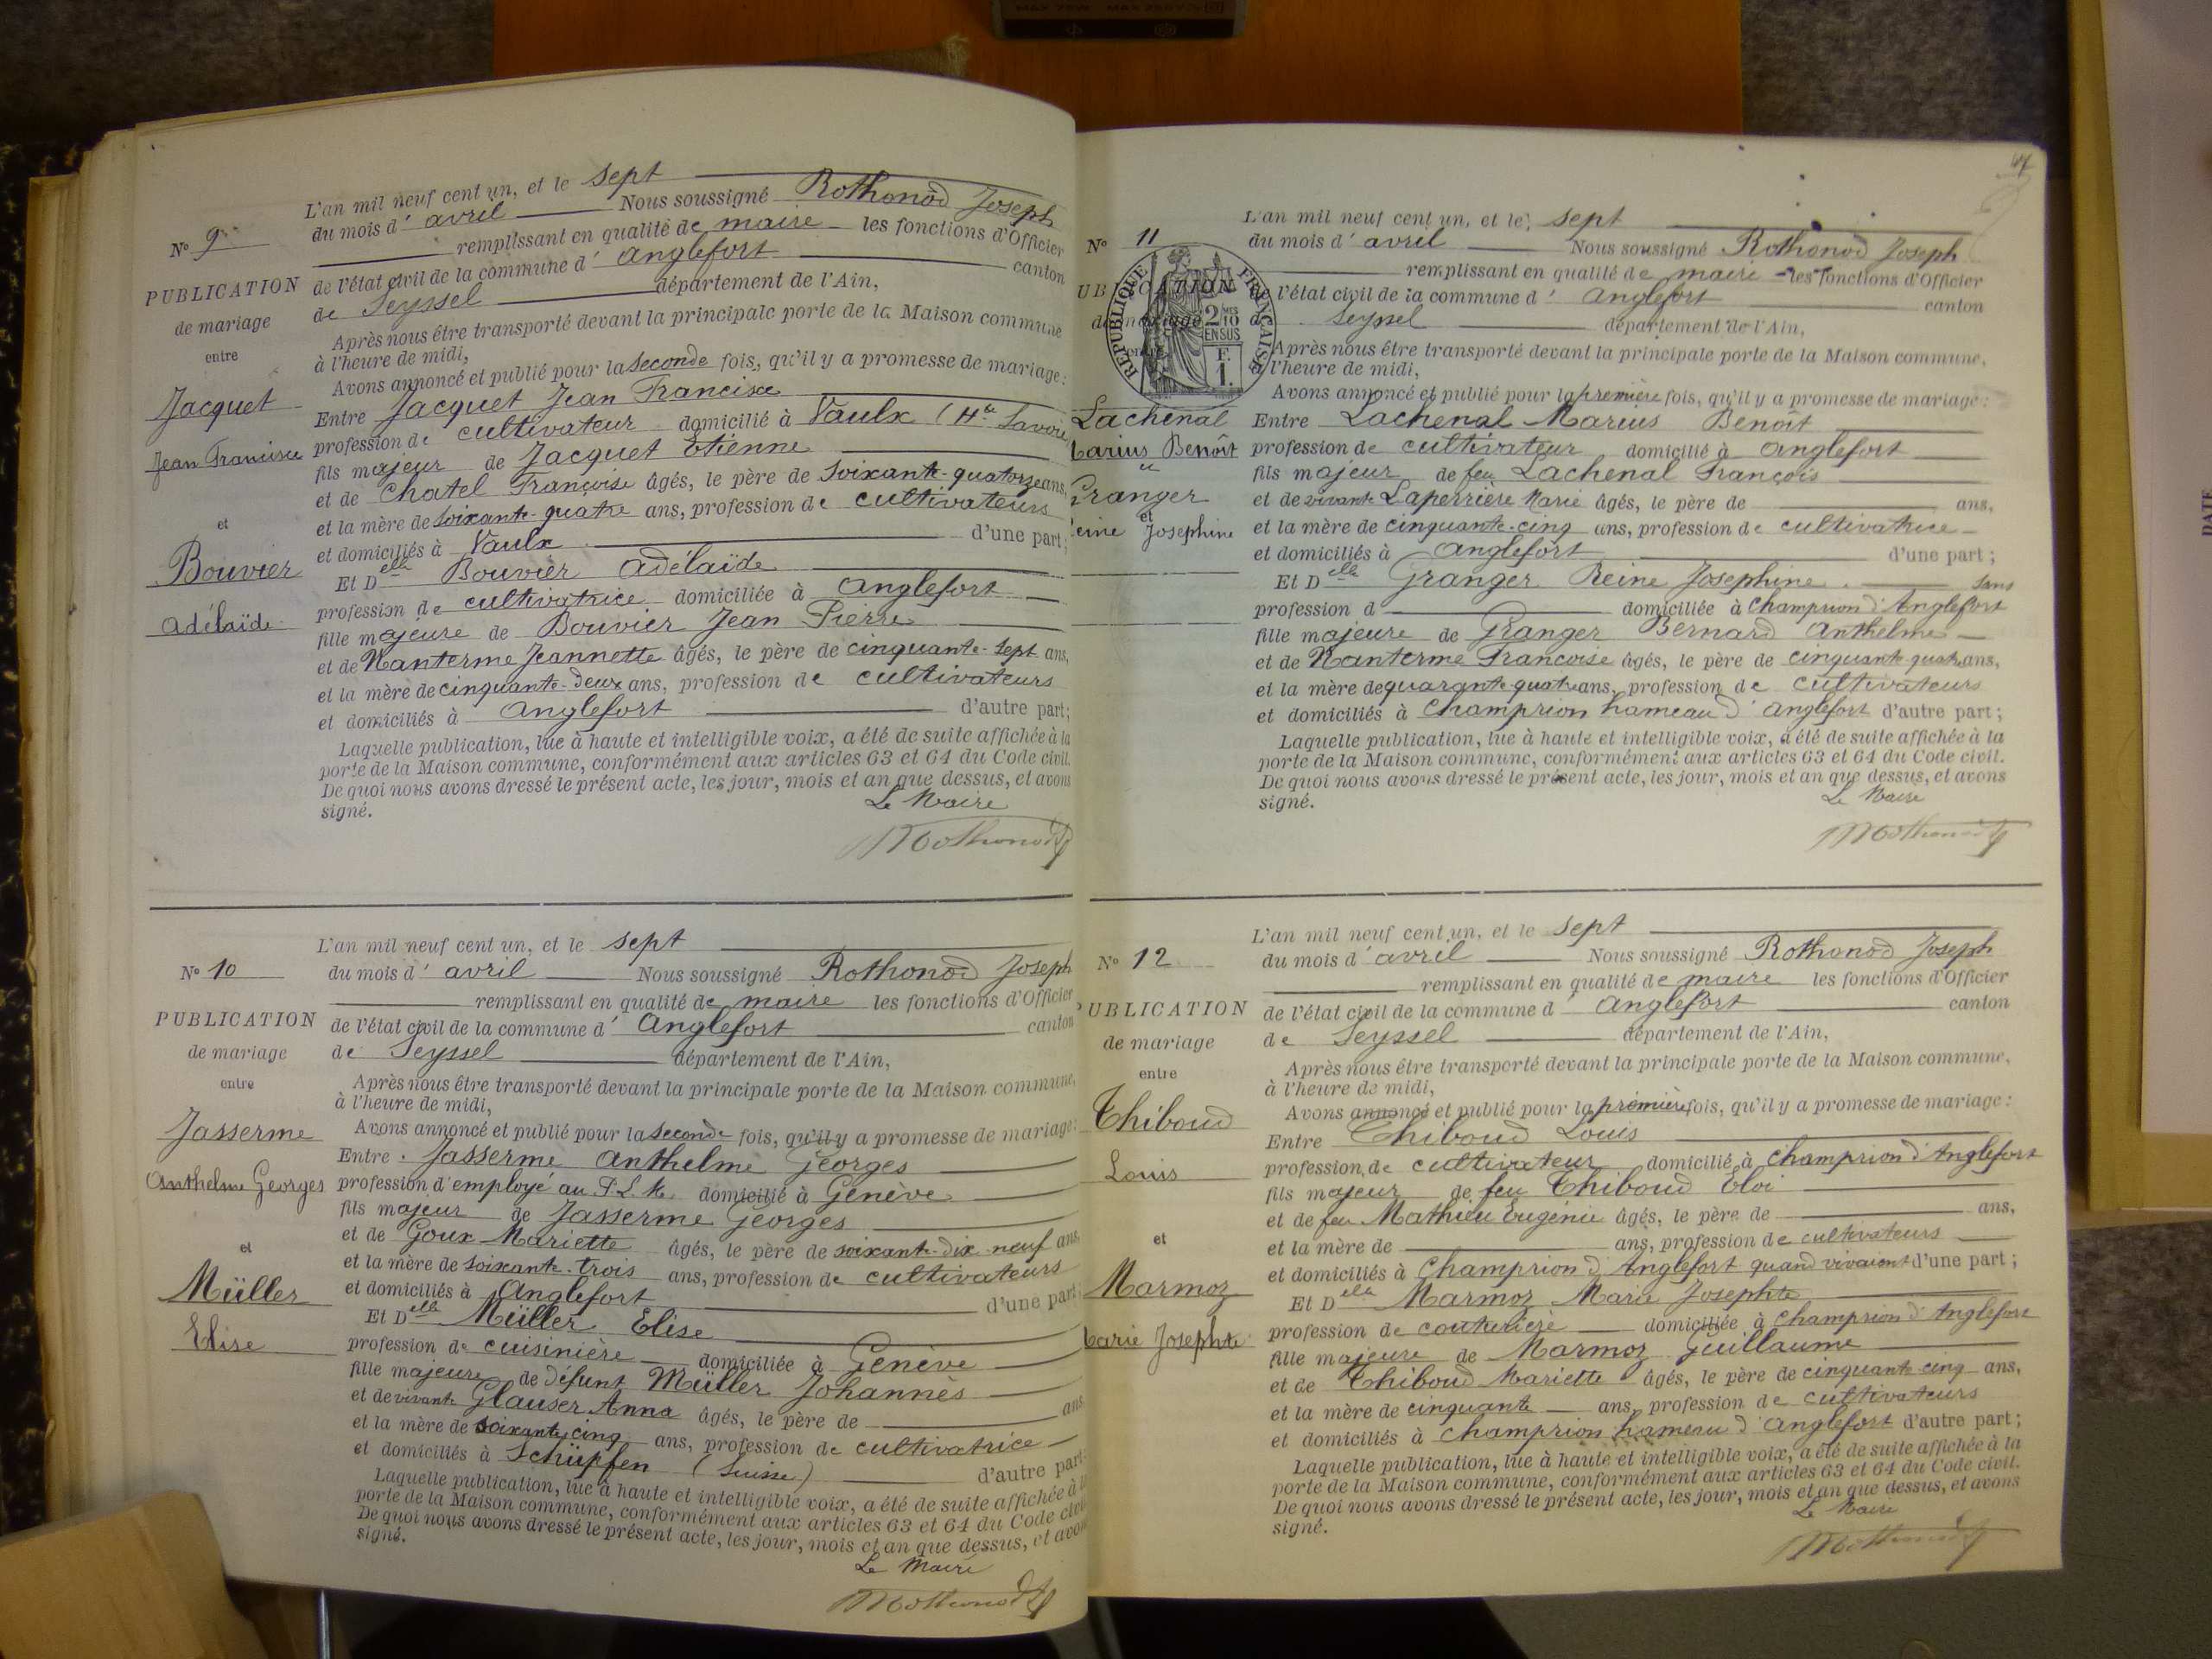 L'an mil neuf cent un, et le sept
du mois d'avril Nous soussigné Rothonod Joseph
N° 9
remplissant en qualité de maire les fonctions d'Officier
de l'état civil de la commune d'Anglefort canton
PUBLICATION
de Seyssel département de l'Ain,
de mariage
Après nous être transporté devant la principale porte de la Maison commune
entre
à l'heure de midi,
Avons annoncé et publié pour la seconde fois, qu'il y a promesse de mariage :
Jacquet
Entre Jacquet Jean Francisce
Jean Francisce
profession de cultivateur domicilié à Vaulx (Hte Savoie
fils majeur de Jacquet Etienne
et de Chatel Françoise âgés, le père de soixante-quatorze ans,
et la mère de soixante-quatre ans, profession de cultivateurs
et
et domiciliés à Vaulx d'une part ;
Bouvier
Et Delle Bouvier Adélaïde
Adélaïde
profession de cultivatrice domiciliée à Anglefort
fille majeure de Bouvier Jean Pierre
et de Nanterme Jeannette âgés, le père de cinquante-sept ans,
et la mère de cinquante-deux ans, profession de cultivateurs
et domiciliés à Anglefort d'autre part ;
Laquelle publication, lue à haute et intelligible voix, a été de suite affichée à la
porte de la Maison commune, conformément aux articles 63 et 64 du Code civil.
De quoi nous avons dressé le présent acte, les jour, mois et an que dessus, et avons
signé.
Le Maire
Rothonod
L'an mil neuf cent un, et le sept
N° 10
du mois d'avril Nous soussigné Rothonod Joseph
remplissant en qualité de maire les fonctions d'Officier
PUBLICATION
de l'état civil de la commune d'Anglefort canton
de mariage
de Seyssel département de l'Ain,
entre
Après nous être transporté devant la principale porte de la Maison commune,
à l'heure de midi,
Jasserme
Avons annoncé et publié pour la seconde fois, qu'il y a promesse de mariage :
Entre Jasserme Anthelme Georges
Anthelme Georges
profession d'employé au P.L.M. domicilié à Genève
fils majeur de Jasserme Georges
et
et de Goux Mariette âgés, le père de soixante-dix-neuf ans,
et la mère de soixante-trois ans, profession de cultivateurs
Müller
et domiciliés à Anglefort d'une part
Et Delle Müller Elise
Elise
profession de cuisinière domiciliée à Genève
fille majeure de défunt Müller Johannès
et de vivante Glauser Anna âgés, le père de ans
et la mère de soixante-cinq ans, profession de cultivatrice
et domiciliés à Schüpfen (Suisse) d'autre part
Laquelle publication, lue à haute et intelligible voix, a été de suite affichée à la
porte de la Maison commune, conformément aux articles 63 et 64 du Code civil
De quoi nous avons dressé le présent acte, les jour, mois et an que dessus, et avons
signé.
Le Maire
Rothonod
L'an mil neuf cent un, et le sept
N° 11
du mois d'avril Nous soussigné Rothonod Joseph
remplissant en qualité de maire les fonctions d'Officier
UBLICATION
l'état civil de la commune d'Anglefort canton
de mariage
de Seyssel département de l'Ain,
RÉPUBLIQUE FRANÇAISE
2 MES 10 EN SUS
F. 1.
Après nous être transporté devant la principale porte de la Maison commune,
l'heure de midi,
Avons annoncé et publié pour la première fois, qu'il y a promesse de mariage :
Lachenal
Entre Lachenal Marius Benoît
Marius Benoît
profession de cultivateur domicilié à Anglefort
fils majeur de feu Lachenal François
Granger
et de vivante Laperrière Marie âgés, le père de ans,
et
Reine Josephine
et la mère de cinquante-cinq ans, profession de cultivatrice
et domiciliés à Anglefort d'une part ;
Et Delle Granger Reine Josephine sans
profession d domiciliée à Champrion d'Anglefort
fille majeure de Granger Bernard Anthelme
et de Nanterme Francoise âgés, le père de cinquante-quatre ans,
et la mère de quarante-quatre ans, profession de cultivateurs
et domiciliés à Champrion hameau d'Anglefort d'autre part ;
Laquelle publication, lue à haute et intelligible voix, a été de suite affichée à la
porte de la Maison commune, conformément aux articles 63 et 64 du Code civil.
De quoi nous avons dressé le présent acte, les jour, mois et an que dessus, et avons
signé.
Le Maire
Rothonod
L'an mil neuf cent un, et le sept
N° 12
du mois d'avril Nous soussigné Rothonod Joseph
remplissant en qualité de maire les fonctions d'Officier
PUBLICATION
de l'état civil de la commune d'Anglefort canton
de mariage
de Seyssel département de l'Ain,
entre
Après nous être transporté devant la principale porte de la Maison commune,
à l'heure de midi,
Thiboud
Avons annoncé et publié pour la première fois, qu'il y a promesse de mariage :
Entre Thiboud Louis
Louis
profession de cultivateur domicilié à Champrion d'Anglefort
fils majeur de feu Thiboud Eloi
et de feu Mathieu Eugenie âgés, le père de ans,
et
et la mère de ans, profession de cultivateurs
et domiciliés à Champrion d'Anglefort quand vivaient d'une part ;
Marmoz
Et Delle Marmoz Marie Josephte
Marie Josephte
profession de couturière domiciliée à Champrion d'Anglefort
fille majeure de Marmoz Guillaume
et de Thiboud Mariette âgés, le père de cinquante-cinq ans,
et la mère de cinquante ans, profession de cultivateurs
et domiciliés à Champrion hameau d'Anglefort d'autre part ;
Laquelle publication, lue à haute et intelligible voix, a été de suite affichée à la
porte de la Maison commune, conformément aux articles 63 et 64 du Code civil.
De quoi nous avons dressé le présent acte, les jour, mois et an que dessus, et avons
signé.
Le Maire
Rothonod
DATE